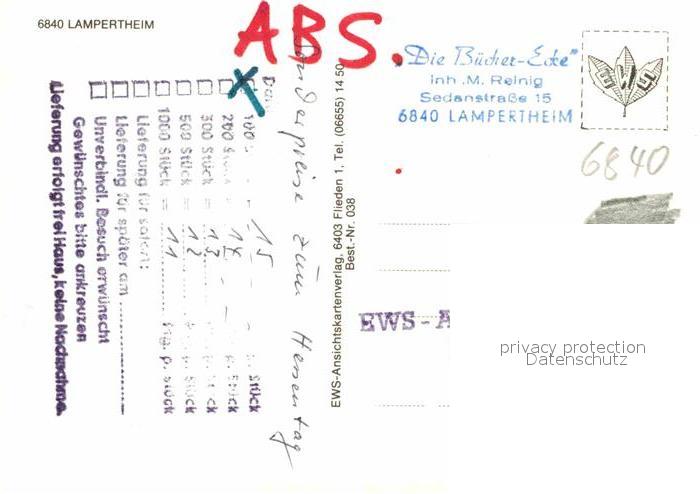 6840 LAMPERTHEIM
ABS.
"Die Bücher-Ecke"
Inh. M. Reinig
Sedanstraße 15
6840 LAMPERTHEIM
EWS
6840
Sonderpreise zum Hessentag
100 Stück 15 p. Stück
200 Stück 14 p. Stück
300 Stück = 13 p. Stück
500 Stück = 12 p. Stück
1000 Stück = 11 Pfg. p. Stück
Lieferung für sofort:
Lieferung für später am
Unverbindl. Besuch erwünscht
Gewünschtes bitte ankreuzen
Lieferung erfolgt frei Haus, keine Nachnahme.
EWS-Ansichtskartenverlag, 6403 Flieden 1, Tel. (06655) 14 50
Best.-Nr. 038
EWS - A
privacy protection
Datenschutz